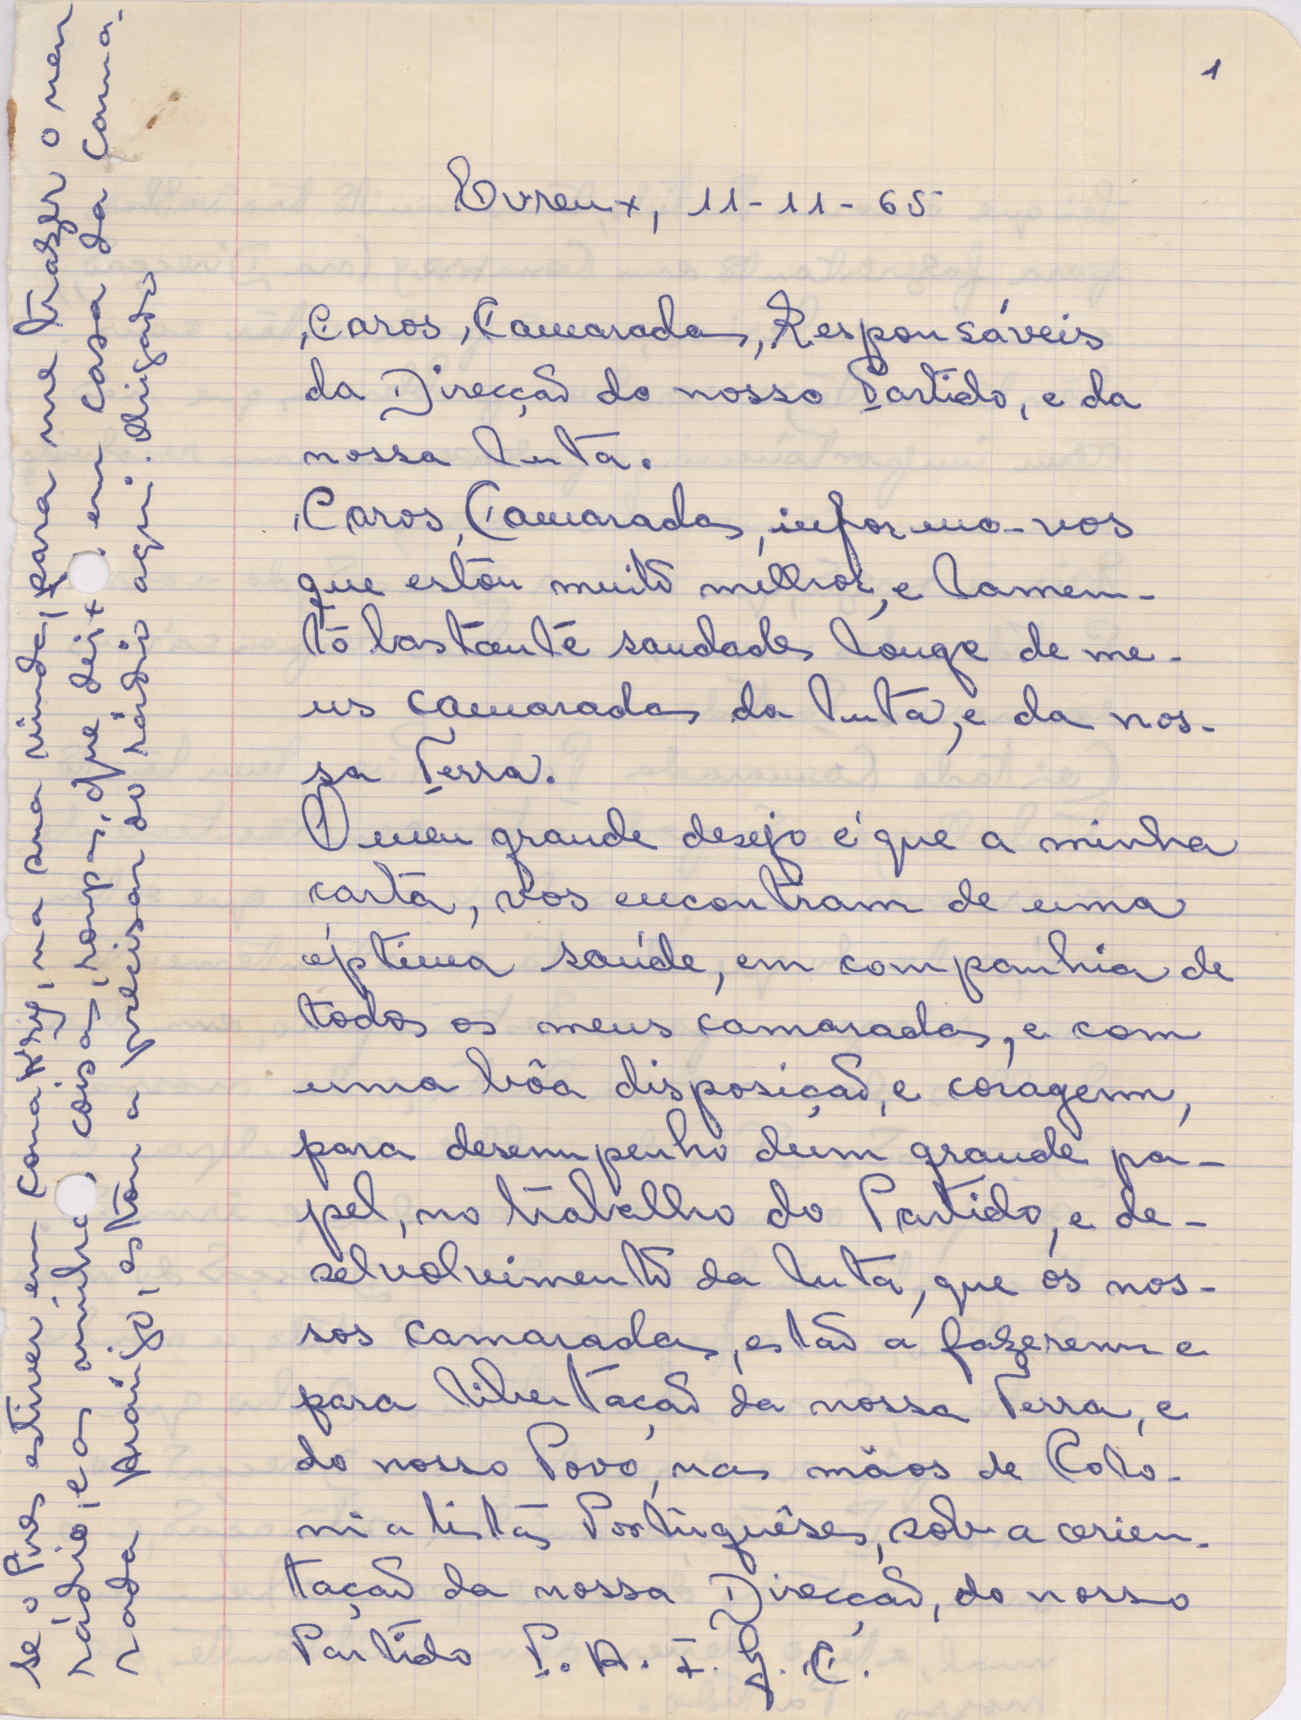 1
Evreux, 11-11-65
Caros, Camaradas, Responsáveis
da Direcção do nosso Partido, e da
nossa luta.
Caros, Camaradas, informo-vos
que estou muito melhor, e lamen-
to bastante saudades longe de me-
us camaradas da luta, e da nos-
sa Terra.
O meu grande desejo é que a minha
carta, vos encontram de uma
óptima saúde, em companhia de
todos os meus camaradas, e com
uma bôa disposição, e coragem,
para desempenho dum grande pa-
pel, no trabalho do Partido, e de-
selvolvimento da luta, que os nos-
sos camaradas, estão a fazerem e
para libertação da nossa Terra, e
do nosso Povo, nas mãos de Colo-
nialistas Portuguêses, sob a orien-
tação da nossa Direcção, do nosso
Partido P.A.I.G.C.
se o Pires estiver em Conakry, na sua vinda, para me trazer o meu
rádio, e as minhas coisas, roupas, que deixei em casa da cama-
rada Araújo, estou a precisar do rádio aqui. Obrigado